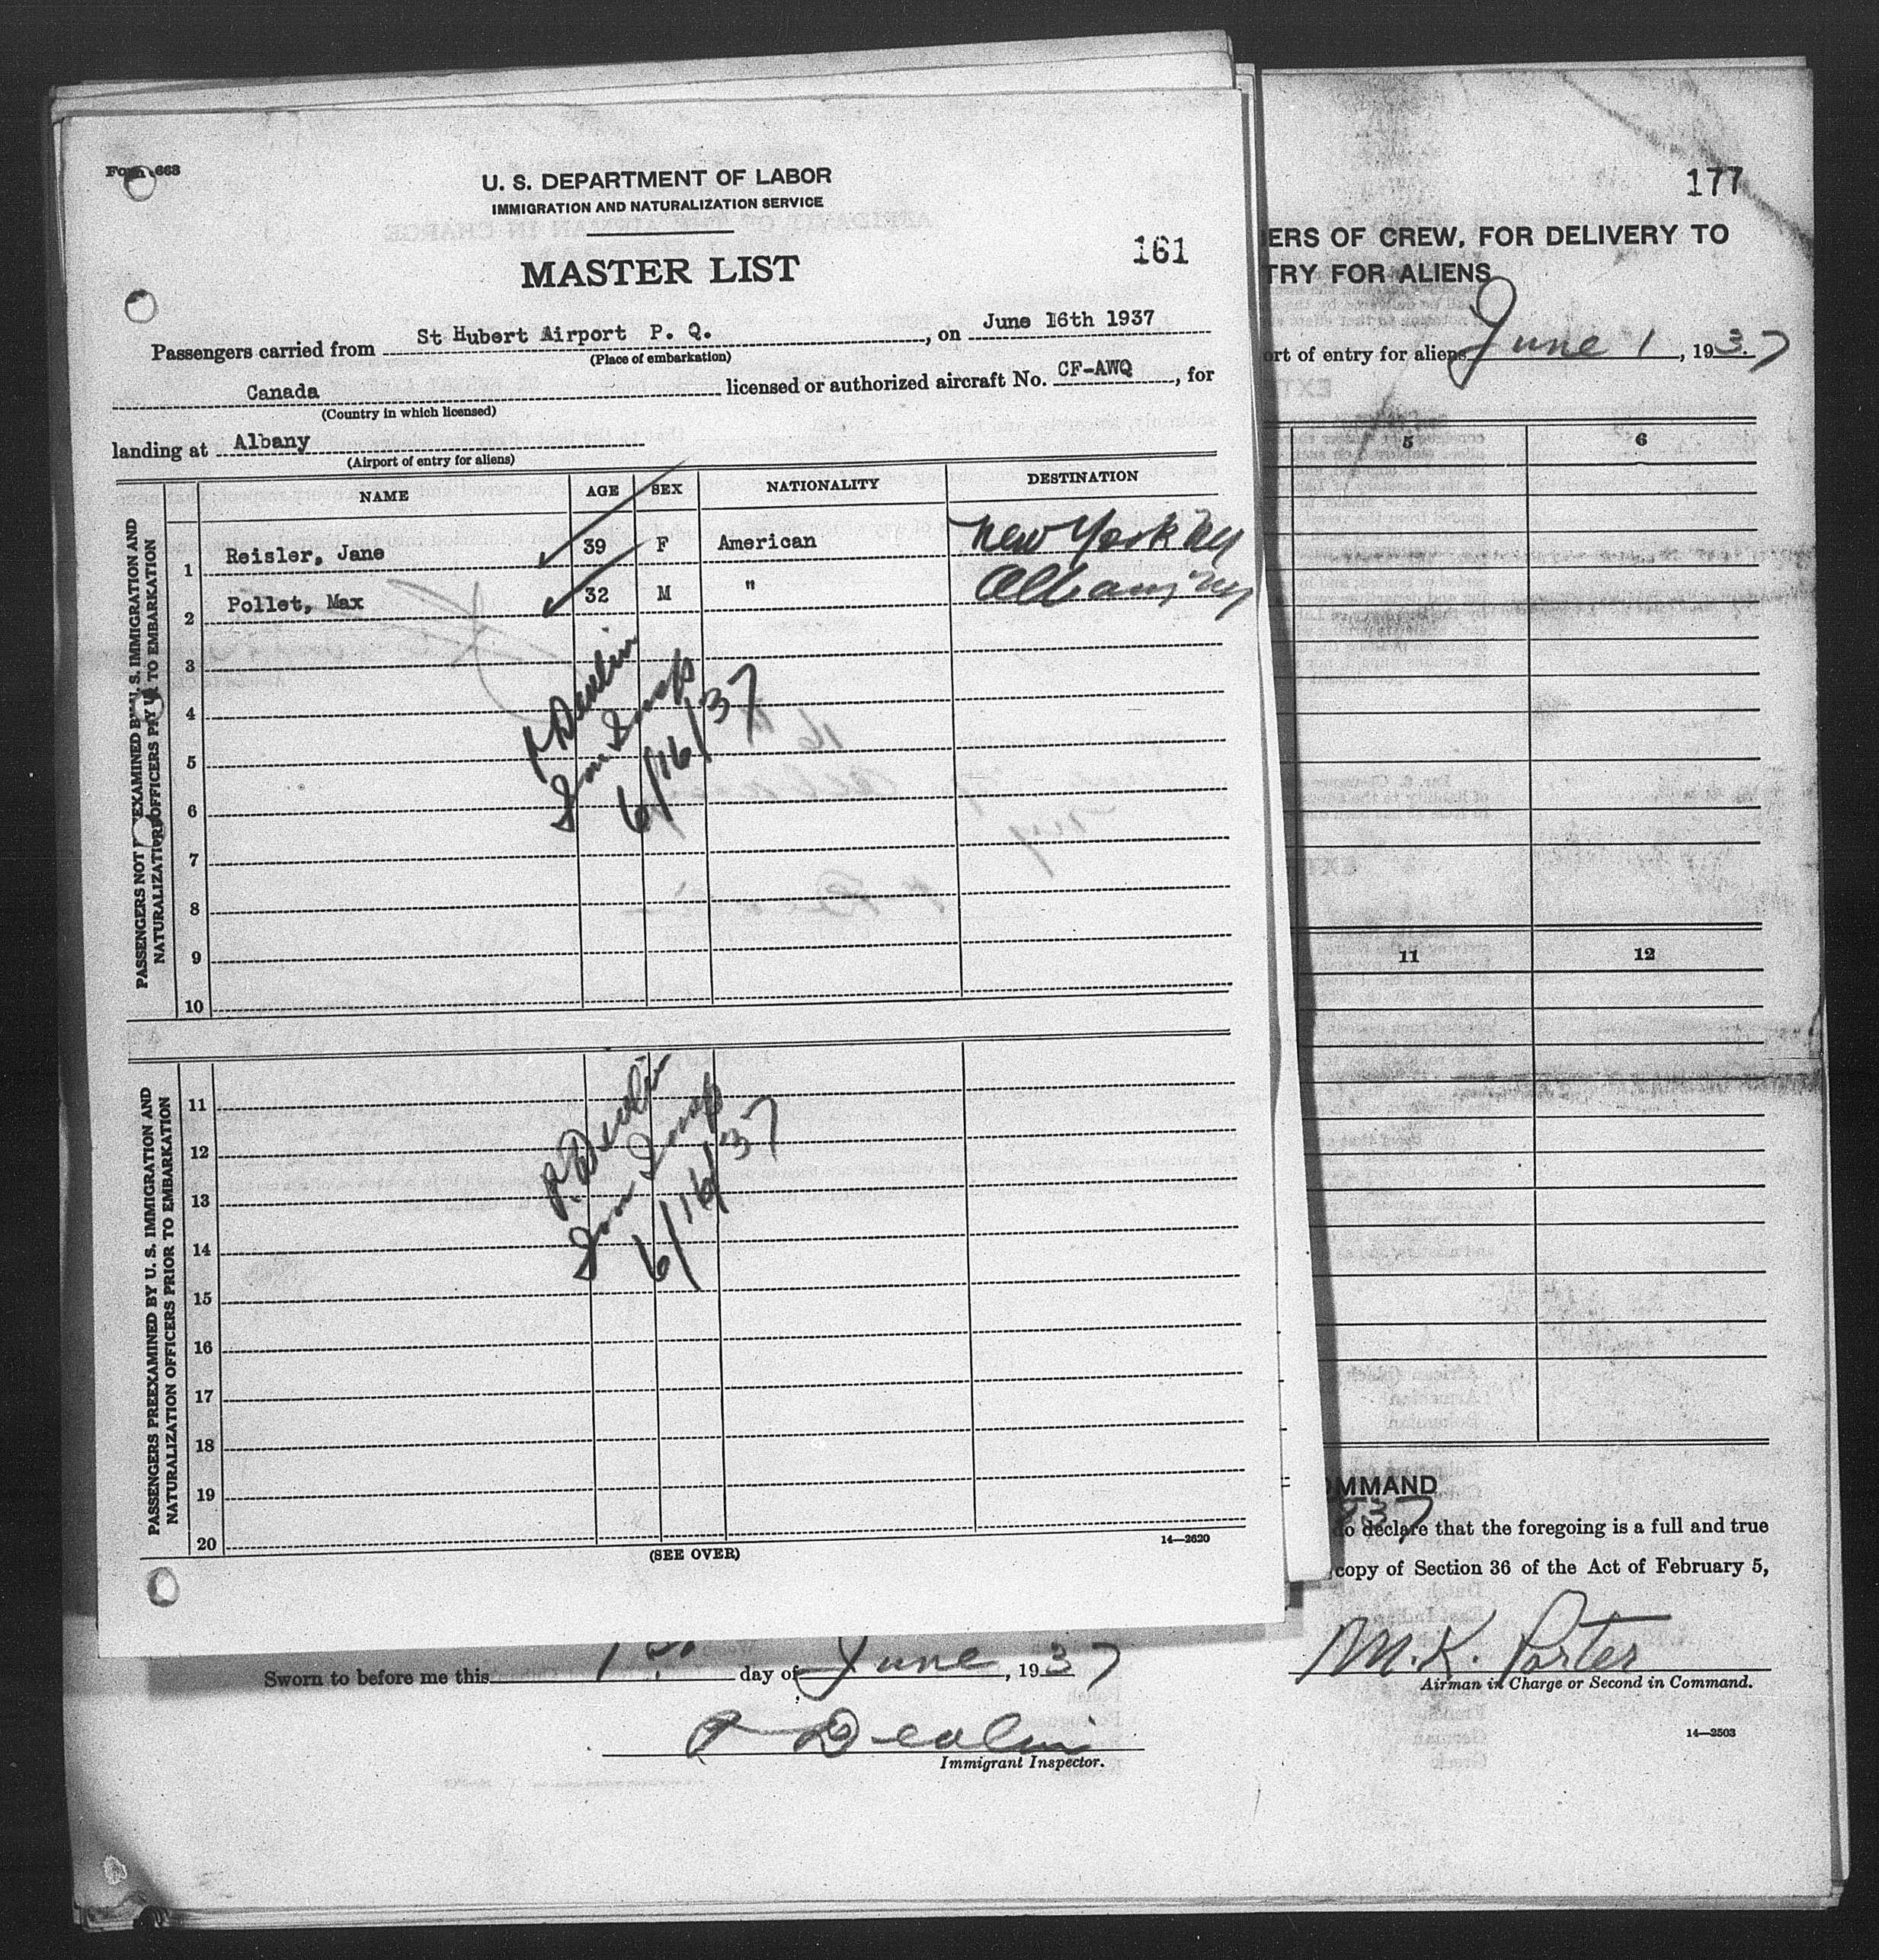 Form 663
U. S. DEPARTMENT OF LABOR
IMMIGRATION AND NATURALIZATION SERVICE
MASTER LIST
161
Passengers carried from St Hubert Airport P. Q., on June 16th 1937
(Place of embarkation)
Canada licensed or authorized aircraft No. CF-AWQ, for
(Country in which licensed)
landing at Albany
(Airport of entry for aliens)
NAME AGE SEX NATIONALITY DESTINATION
PASSENGERS NOT PREEXAMINED BY U. S. IMMIGRATION AND
NATURALIZATION OFFICERS PRIOR TO EMBARKATION
1 Reisler, Jane 39 F American New York NY
2 Pollet, Max 32 M " Albany NY
3
4
5
6
7
8
9
10
P Devlin
Imm Insp
6/16/37
PASSENGERS PREEXAMINED BY U. S. IMMIGRATION AND
NATURALIZATION OFFICERS PRIOR TO EMBARKATION
11
12
13
14
15
16
17
18
19
20
P. Devlin
Imm Insp
6/16/37
(SEE OVER)
14—2620
177
ERS OF CREW, FOR DELIVERY TO
TRY FOR ALIENS
ort of entry for aliens June 1, 1937
5 6
11 12
OMMAND
937
do declare that the foregoing is a full and true
copy of Section 36 of the Act of February 5,
M. K. Porter
Airman in Charge or Second in Command.
Sworn to before me this 1st day of June, 1937
P Devlin
Immigrant Inspector.
14—2503